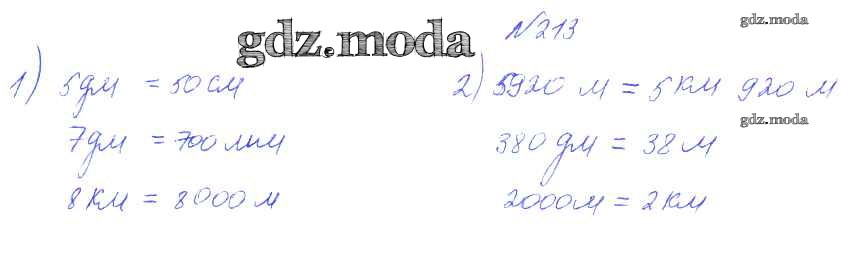 gdz.moda
№213
gdz.moda
1) 5дм = 50 см
7дм = 700 мм
8 км = 8000 м
2) 5920 м = 5 км 920 м
gdz.moda
380 дм = 38 м
2000м = 2 км